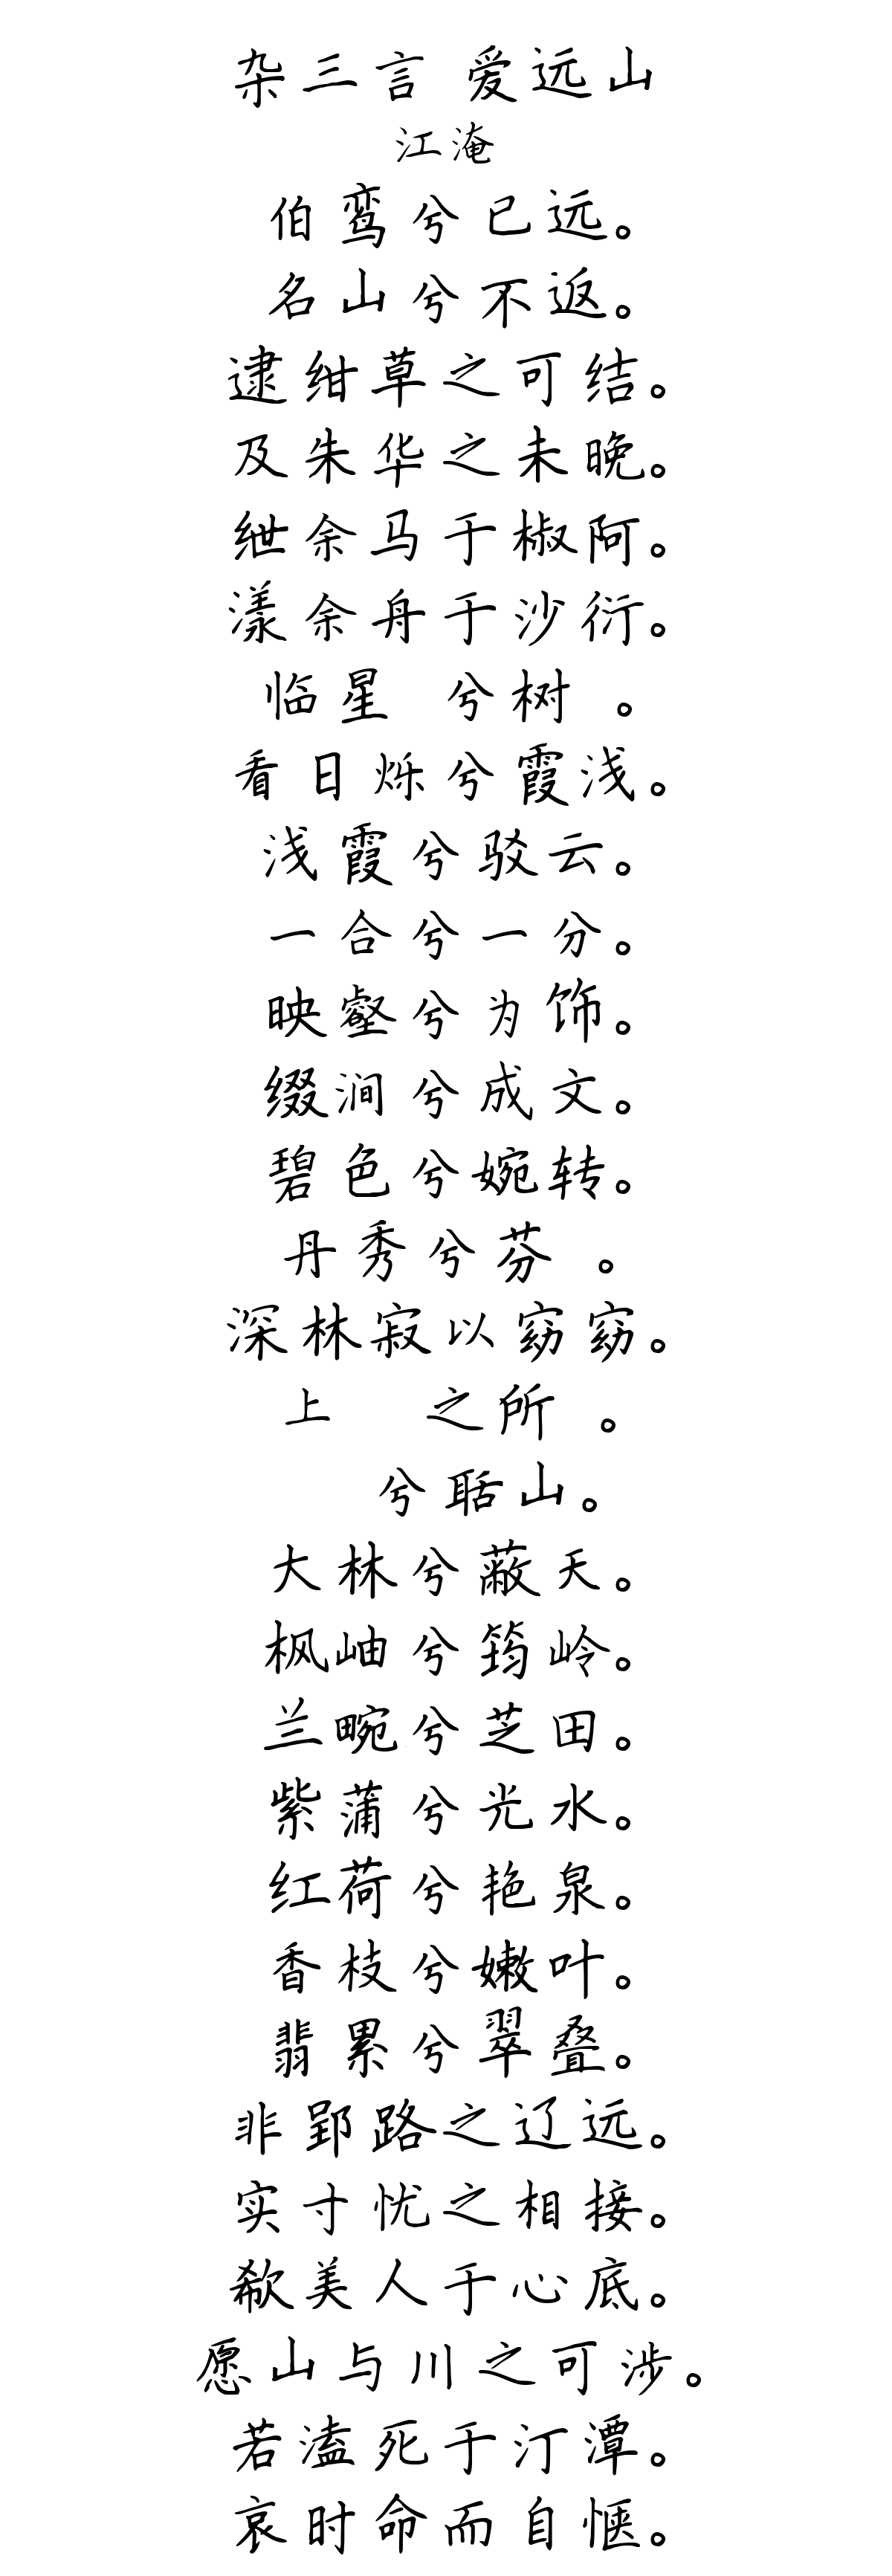 杂三言 爱远山
江淹
伯鸾兮已远。
名山兮不返。
逮绀草之可结。
及朱华之未晚。
绁余马于椒阿。
漾余舟于沙衍。
临星 兮树 。
看日烁兮霞浅。
浅霞兮驳云。
一合兮一分。
映壑兮为饰。
缀涧兮成文。
碧色兮婉转。
丹秀兮芬 。
深林寂以窈窈。
上 之所 。
兮聒山。
大林兮蔽天。
枫岫兮筠岭。
兰畹兮芝田。
紫蒲兮光水。
红荷兮艳泉。
香枝兮嫩叶。
翡累兮翠叠。
非郢路之辽远。
实寸忧之相接。
欷美人于心底。
愿山与川之可涉。
若溘死于汀潭。
哀时命而自惬。